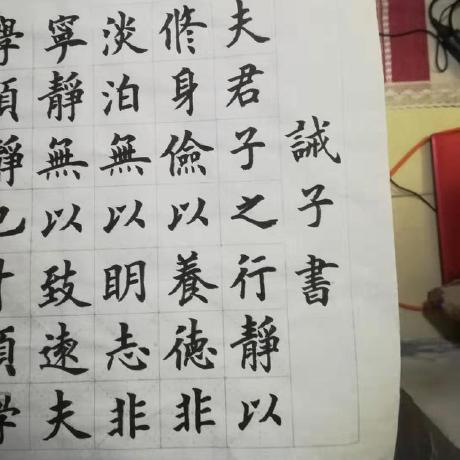 誡子書
夫君子之行靜以
修身儉以養德非
淡泊無以明志非
寧靜無以致遠夫
學須靜也才須學